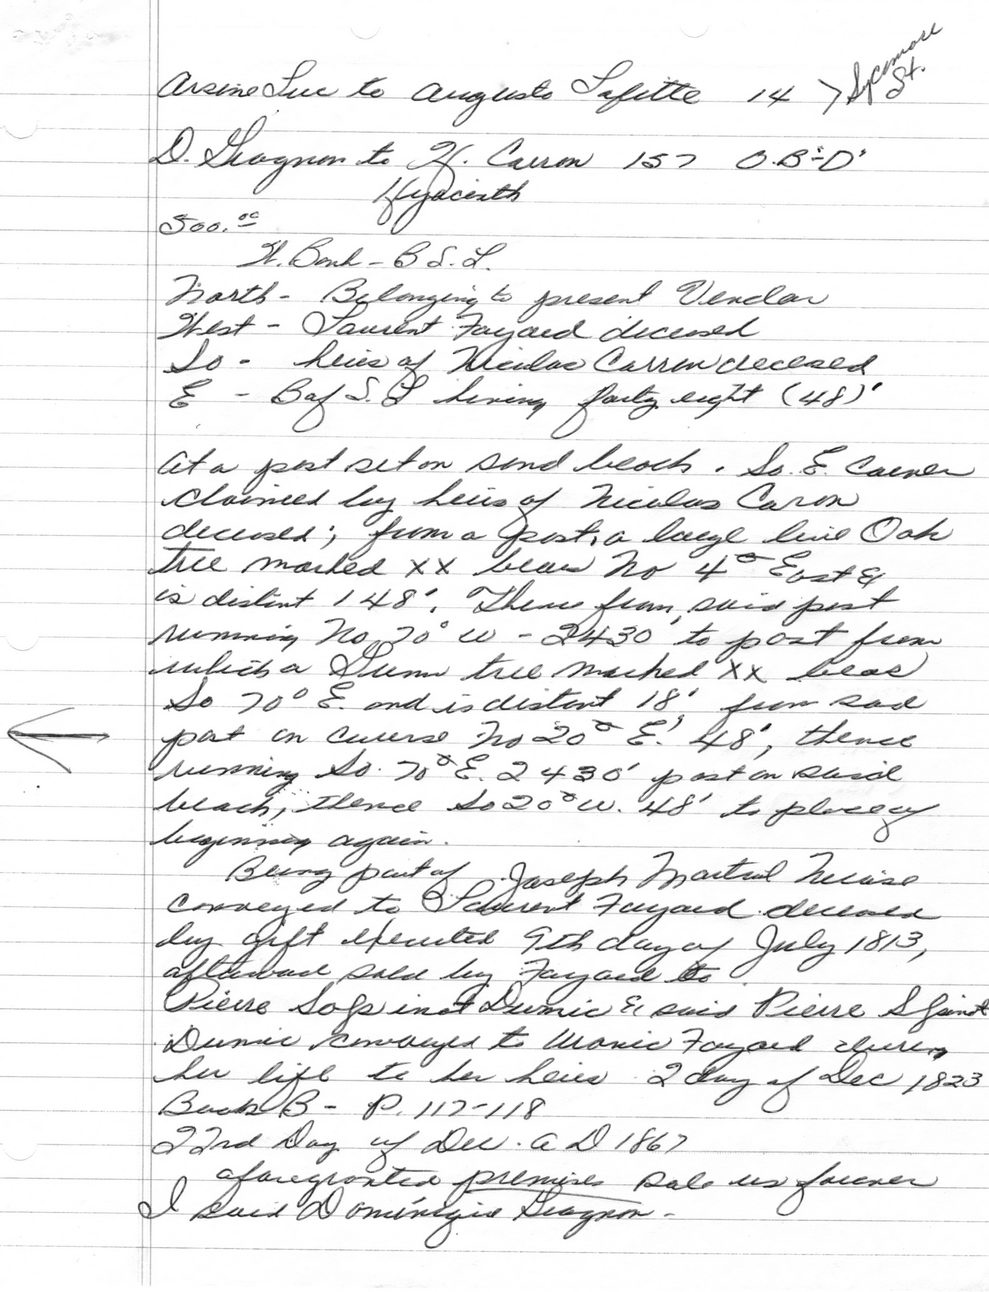 Arsine Luc to Augusto Lafitte 14 > Sycamore St.
D. Gragnon to H. Carron 157 O.B "D"
Hyacinth
500.00
W. Bank - B S. L.
North - Belonging to present Vendor
West - Laurent Fayard deceased
So - heirs of Nicolas Carron deceased
E - B of S. L having forty eight (48)'
At a post set on sand beach. So. E. Corner
claimed by heirs of Nicolas Caron
deceased; from a post, a large live Oak
tree marked XX bears No 4° East &
is distant 148'. Thence from said post
running No 70° W - 2430' to post from
which a Gum tree marked XX bears
So 70° E. and is distant 18' from said
post on course No 20° E. 48', thence
running So. 70° E. 2430' post on said
beach, thence So 20° W. 48' to place of
beginning again.
Being part of Joseph Martial Nicaise
conveyed to Laurent Fayard deceased
by gift executed 9th day of July 1813,
afterward sold by Fayard to
Pierre Dumic & said Pierre
Dumic conveyed to Uranie Fayard during
her life to her heirs 2 day of Dec 1823
Book B - P. 117-118
22nd Day of Dec. A D 1867
aforegranted premises sale us forever
I said Dominique Gragnon -